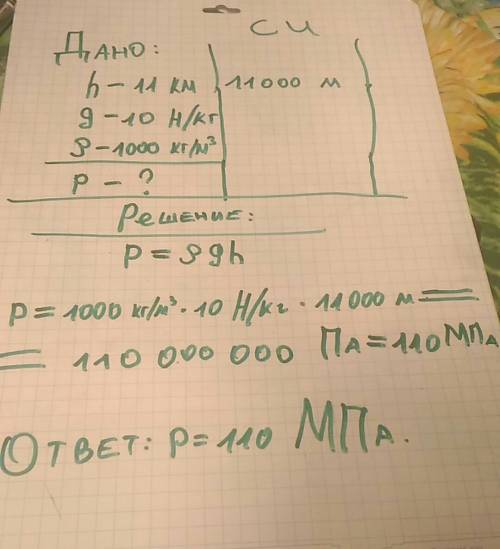 СИ
Дано:
h – 11 км 11000 м
g – 10 Н/кг
ρ – 1000 кг/м³
P – ?
Решение:
P = ρgh
P = 1000 кг/м³ · 10 Н/кг · 11000 м =
= 110 000 000 Па = 110 МПа
Ответ: P = 110 МПа.